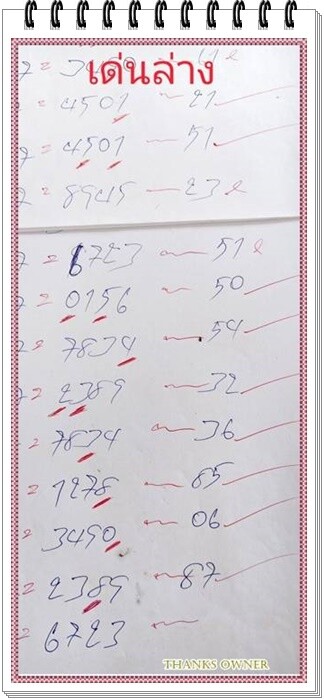 เด่นล่าง
4501 ~ 21
4501 - 51
8945 - 23 ℓ
= 6723 ~ 51 ℓ
= 0156 ~ 50
= 7834 - 54
= 2389 - 32
= 7834 ~ 36
= 1278 ~ 85
= 3490 ~ 06
= 2389 ~ 87
= 6723 ~
THANKS OWNER